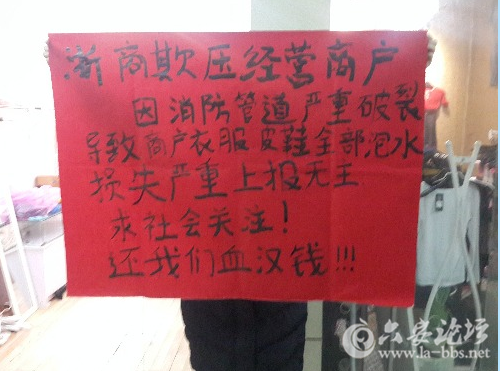 浙商欺压经营商户
因消防管道严重破裂
导致商户衣服皮鞋全部泡水
损失严重上报无主
求社会关注!
还我们血汉钱!!!
六安论坛
www.la-bbs.net